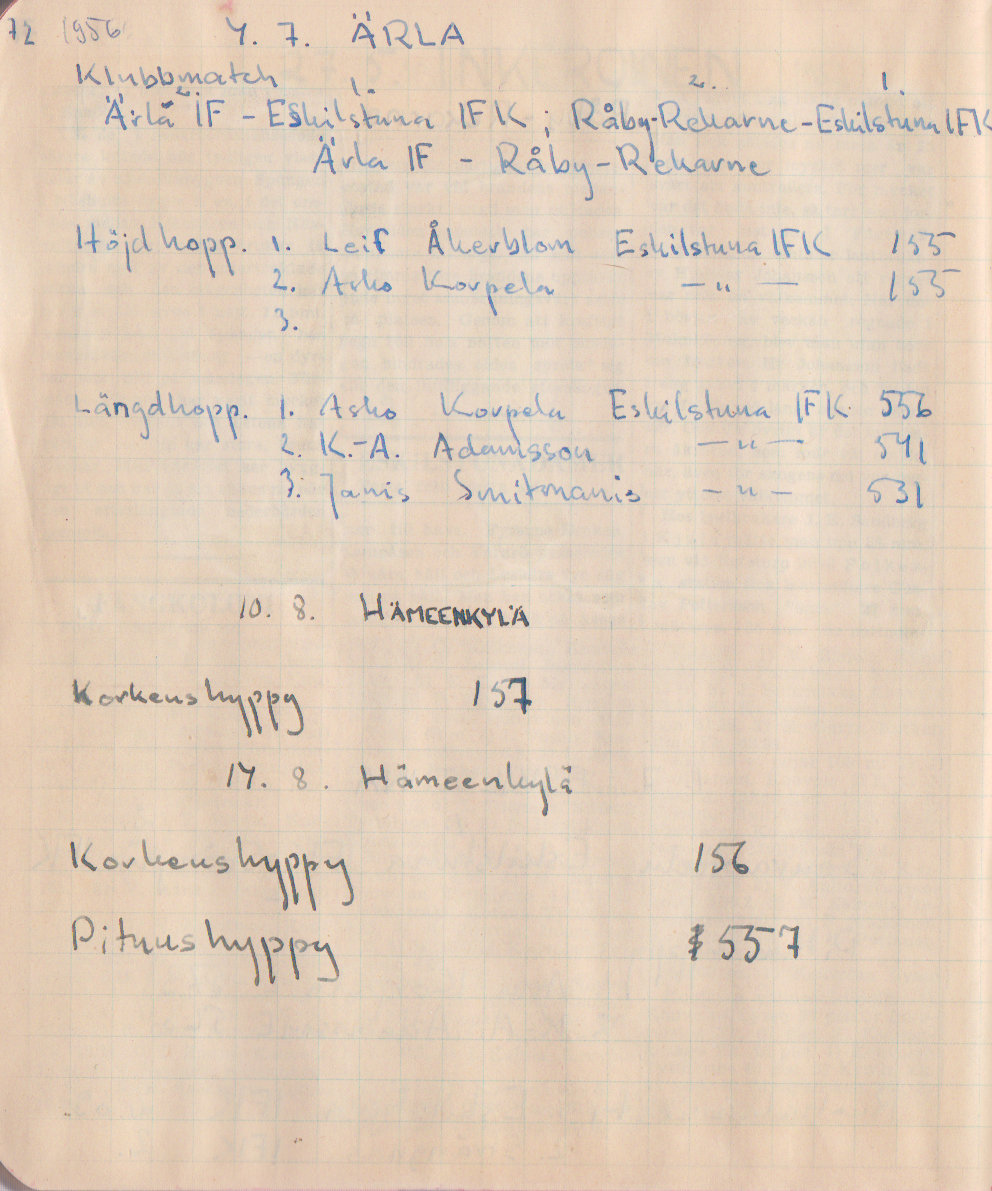 72 1956 4. 7. ÄRLA
Klubbmatch
2. 1. 2. 1.
Ärla IF – Eskilstuna IFK ; Råby-Rekarne – Eskilstuna IFK
Ärla IF – Råby-Rekarne
Höjdhopp. 1. Leif Åkerblom Eskilstuna IFK 155
2. Asko Korpela — " — 155
3.
Längdhopp. 1. Asko Korpela Eskilstuna IFK 556
2. K.-A. Adamsson — " — 541
3. Janis Smitmanis — " — 531
10. 8. HÄMEENKYLÄ
Korkeushyppy 157
14. 8. Hämeenkylä
Korkeushyppy 156
Pituushyppy 557